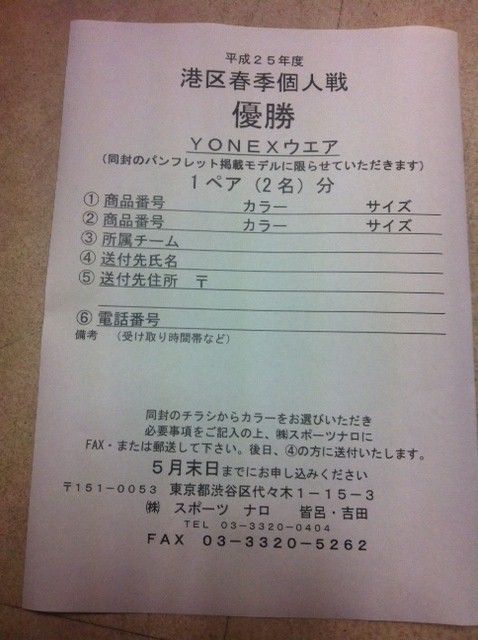 平成２５年度
港区春季個人戦
優勝
ＹＯＮＥＸウエア
(同封のパンフレット掲載モデルに限らせていただきます)
１ペア（２名）分
①商品番号　カラー　サイズ
②商品番号　カラー　サイズ
③所属チーム
④送付先氏名
⑤送付先住所　〒
⑥電話番号
備考　（受け取り時間帯など）
同封のチラシからカラーをお選びいただき
必要事項をご記入の上、㈱スポーツナロに
FAX・または郵送して下さい。後日、④の方に送付いたします。
５月末日までにお申し込みください
〒１５１－００５３　東京都渋谷区代々木１－１５－３
㈱　スポーツ　ナロ　皆呂・吉田
TEL　０３－３３２０－０４０４
ＦＡＸ　０３－３３２０－５２６２